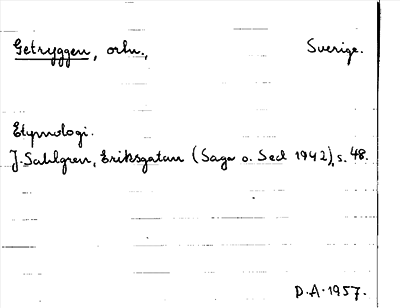 Getryggen, ortn., Sverige.
Etymologi.
J. Sahlgren, Eriksgatan (Saga o. Sed 1942), s. 48.
D.A. 1957.